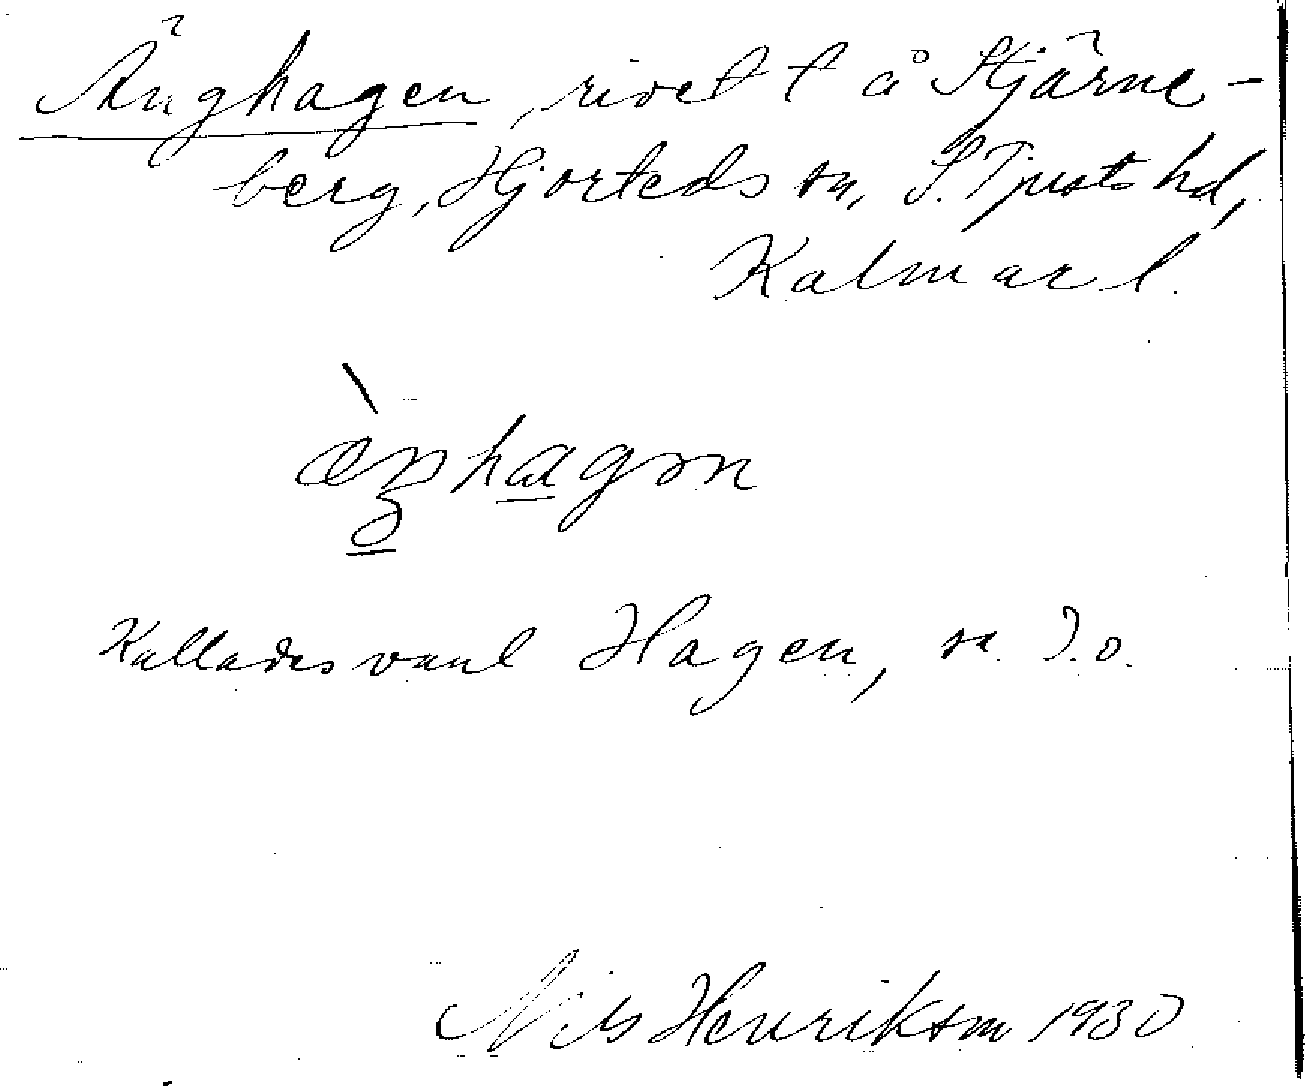 Änghagen, rivet t å Stjärne-
berg, Hjorteds sn, S. Tjusts hd,
Kalmar l.
æŋhagən
Kallades vanl Hagen, se d.o.
Nils Henrikson 1930